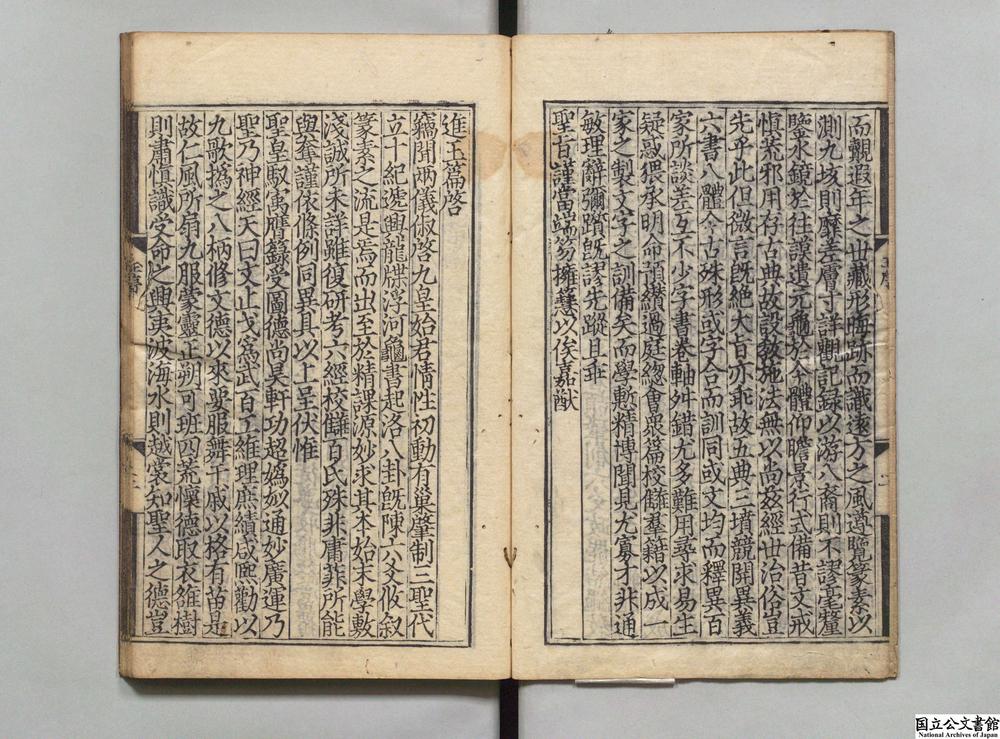 而觀遐年之世藏形晦跡而識遠方之風遵覽篆素以
測九垓則靡差膚寸詳觀記錄以游八裔則不謬毫釐
鑒水鏡於往謨遺元龜於今體仰瞻景行式備昔文戒
愼荒邪用存古典故設敎施法無以尚兹經世治俗豈
先乎此但微言旣絶大旨亦乖故五典三墳競開異義
六書八體今古殊形或字各而訓同或文均而釋異百
家所談差互不少字書卷軸舛錯尤多難用尋求易生
疑惑猥承明命預纘過庭總會衆篇校讎羣籍以成一
家之製文字之訓備矣而學慙精博聞見尤寡才非通
敏理辭彌躓旣謬先蹤且乖
聖旨謹當端笏擁篲以俟嘉猷
進玉篇啓
竊聞兩儀俶啓九皇始君情性初動有巢肇制三聖代
立十紀遞興龍牒浮河龜書起洛八卦旣陳六爻攸叙
篆素之流是焉而出至於精課源妙求其本始末學敷
淺誠所未詳雖復研考六經校讎百氏殊非庸菲所能
與奪謹依條例同異具以上呈伏惟
聖皇馭㝢膺籙受圖德尚昊軒功超嬀姒通妙廣運乃
聖乃神經天曰文止戈爲武百工維理庶績咸熈勸以
九歌撝之八柄修文德以來要服舞干戚以格有苗是
故仁風所扇九服蒙靈正朔可班四荒懷德取衣雒樹
則肅愼識受命之興夷波海水則越裳知聖人之德豈
玉序
玉序
国立公文書館
National Archives of Japan